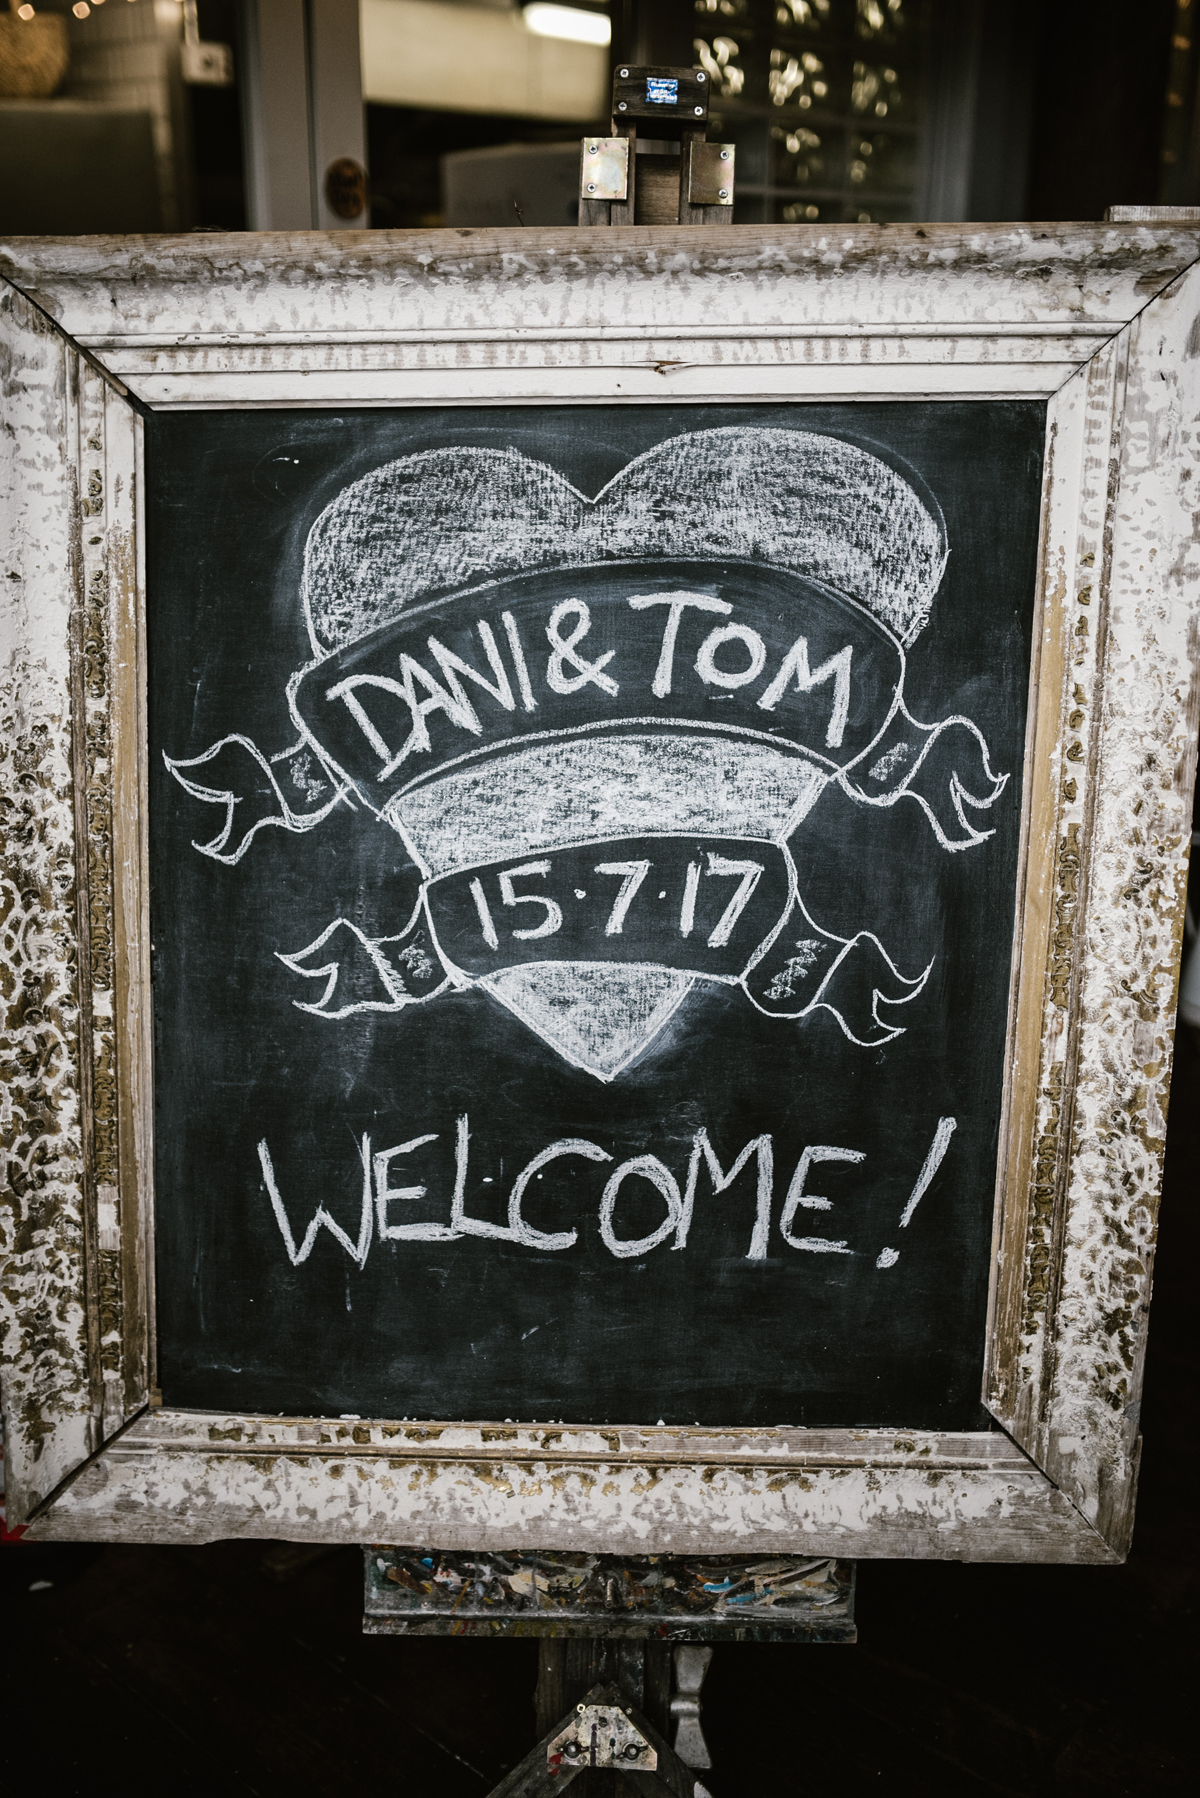 DANI & TOM
15·7·17
WELCOME!